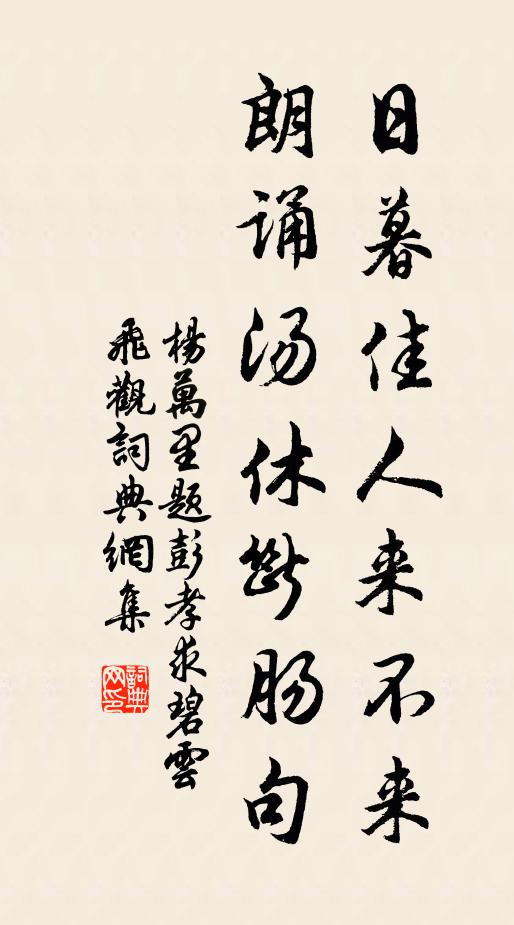 日暮佳人来不来
朗诵汤休断肠句
楊萬里题彭孝求碧雲
飛觀詞典網集
詞典
网印